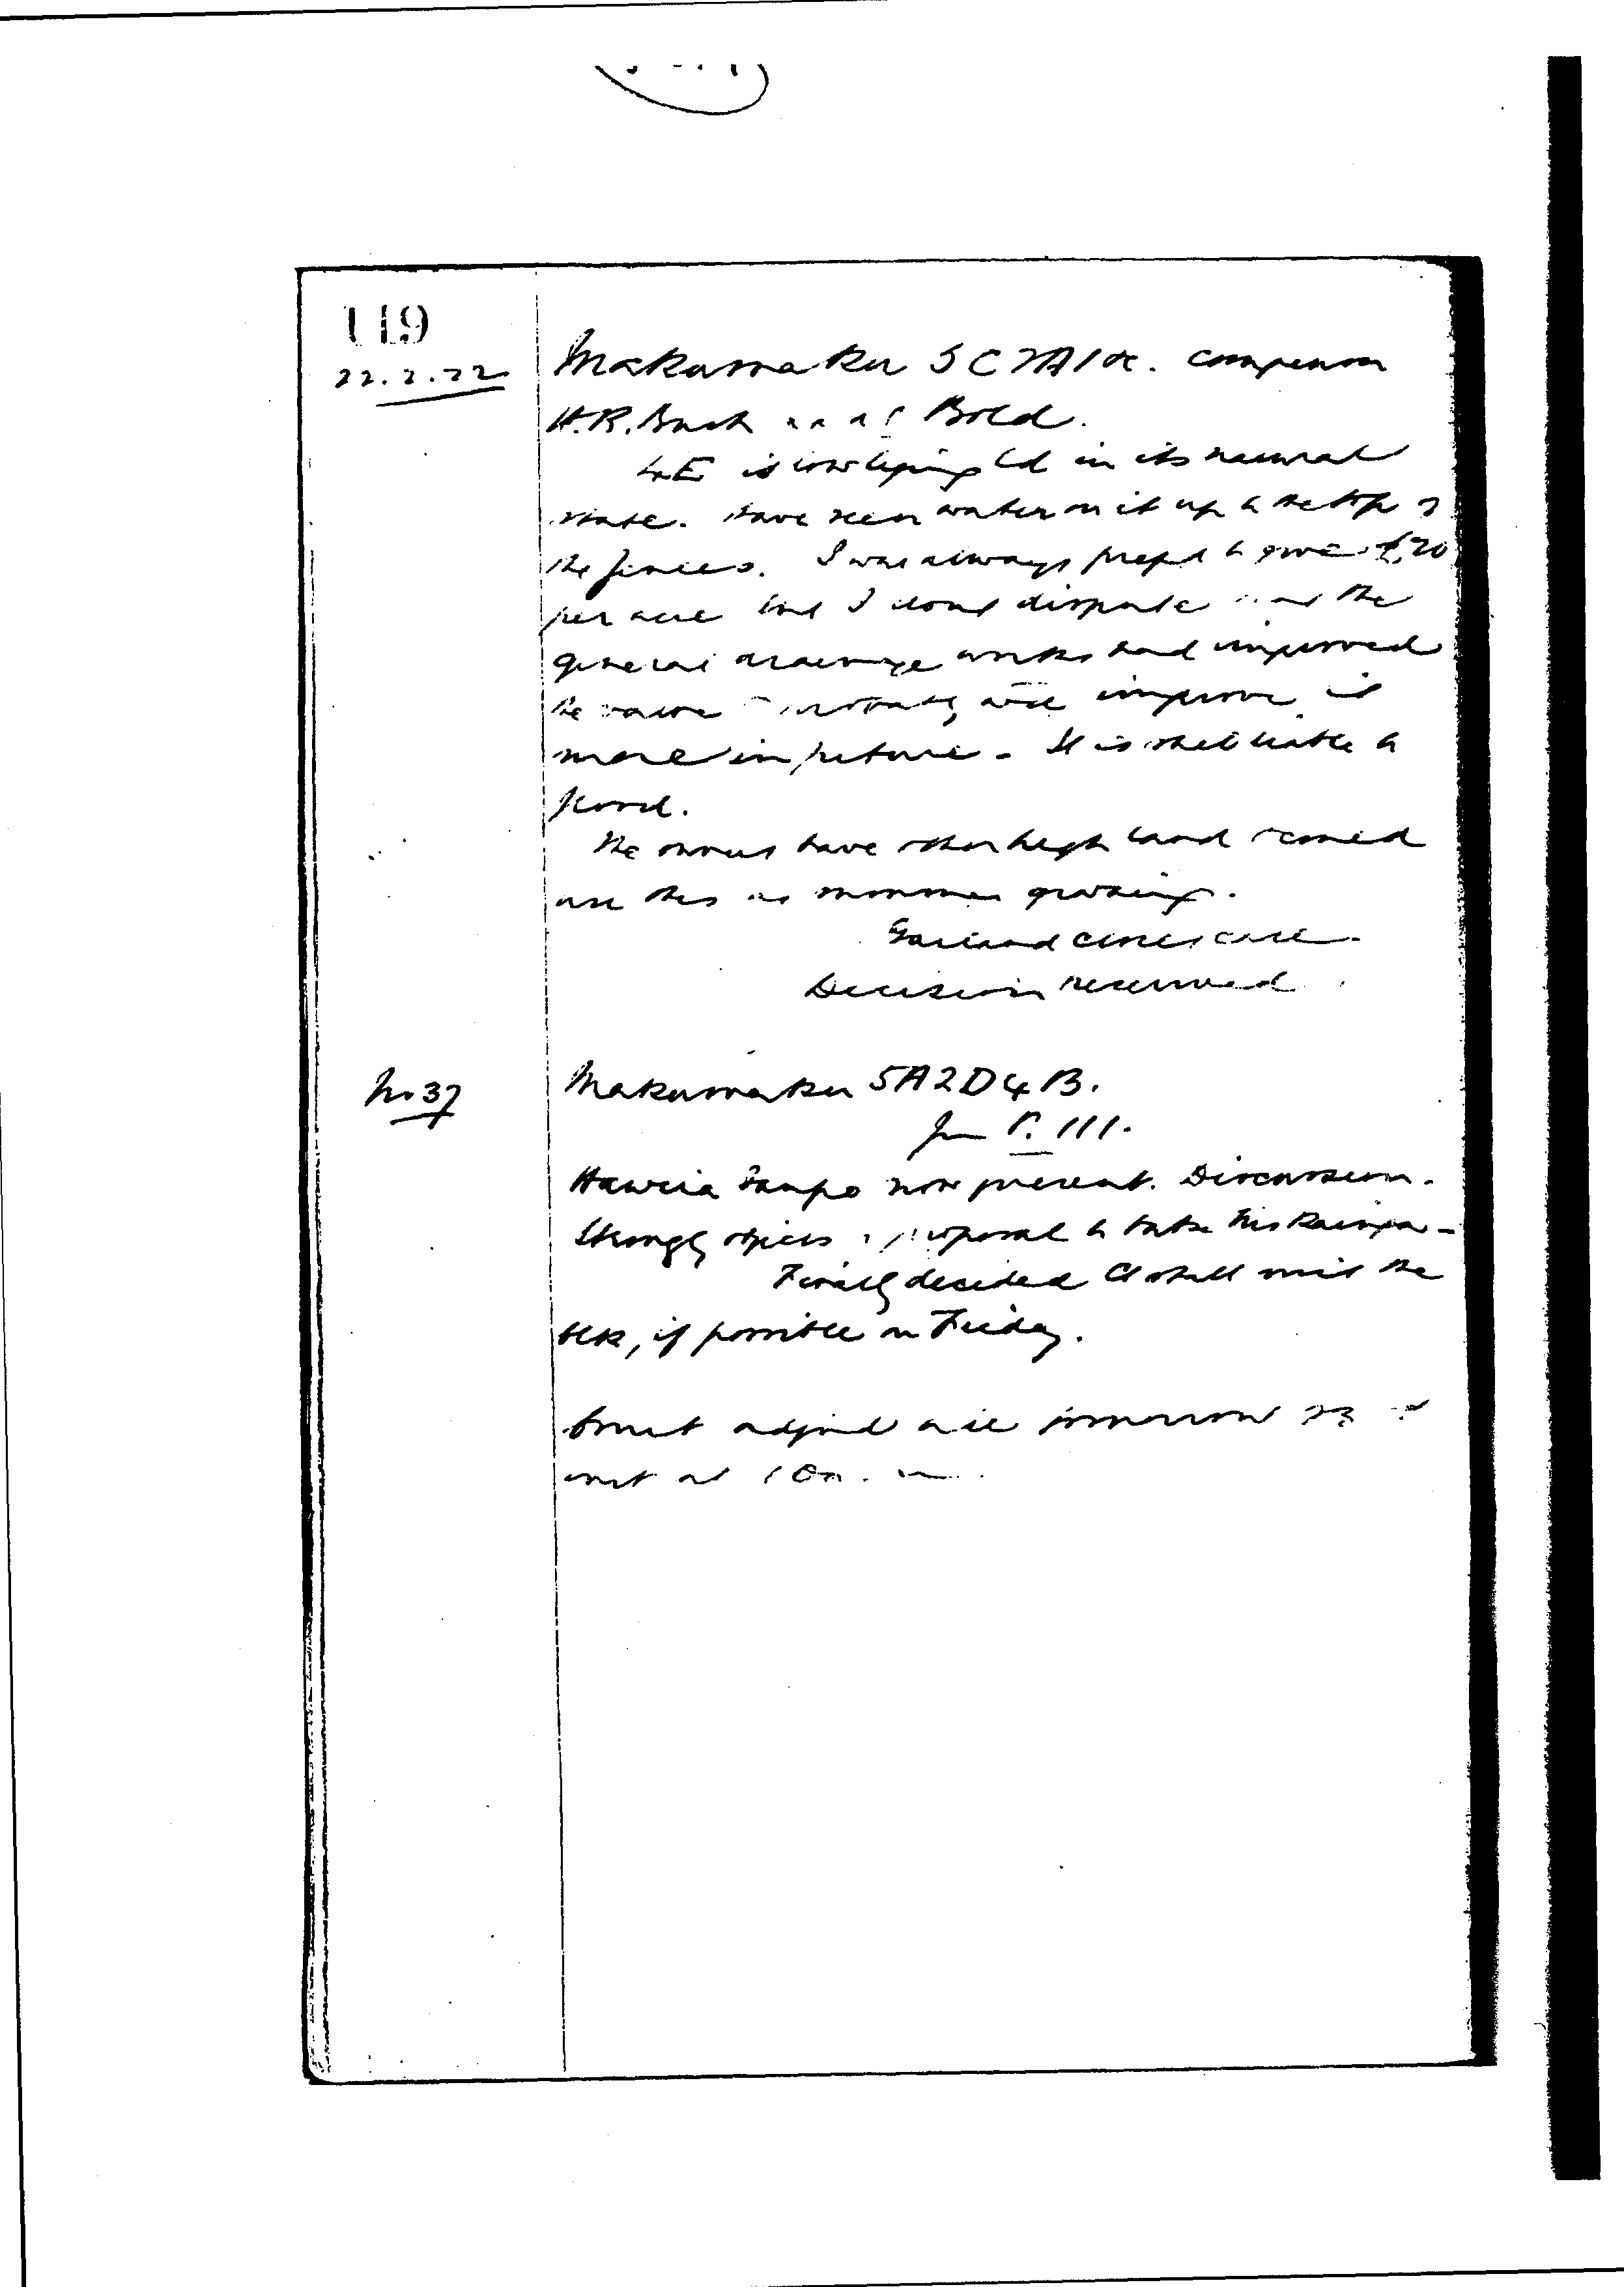 119
22.2.22
Makumaku 5C2A1 &c. Compension
H.R. Bush Bold.
4E is low lying ld in its natural
state. Have seen water on it up to the top of
the fences. I was always prepd to give £20
per acre but I dont dispute that the
general drainage works had improved
the value probably will improve it
more in future - It is still liable to
flood.
The owners have other high land &
use this as summer grazing.
Garland closes case.
Decision reserved.
No 37
Makumaku 5A2D4B.
Fm P. 111.
Hawira Taupo now present. Discussion.
Strongly objects proposal to take his Rainga -
Finally decided Ct shall visit the
blk, if possible on Friday.
Court adjnd till tomorrow 23
inst at 10 a.m.